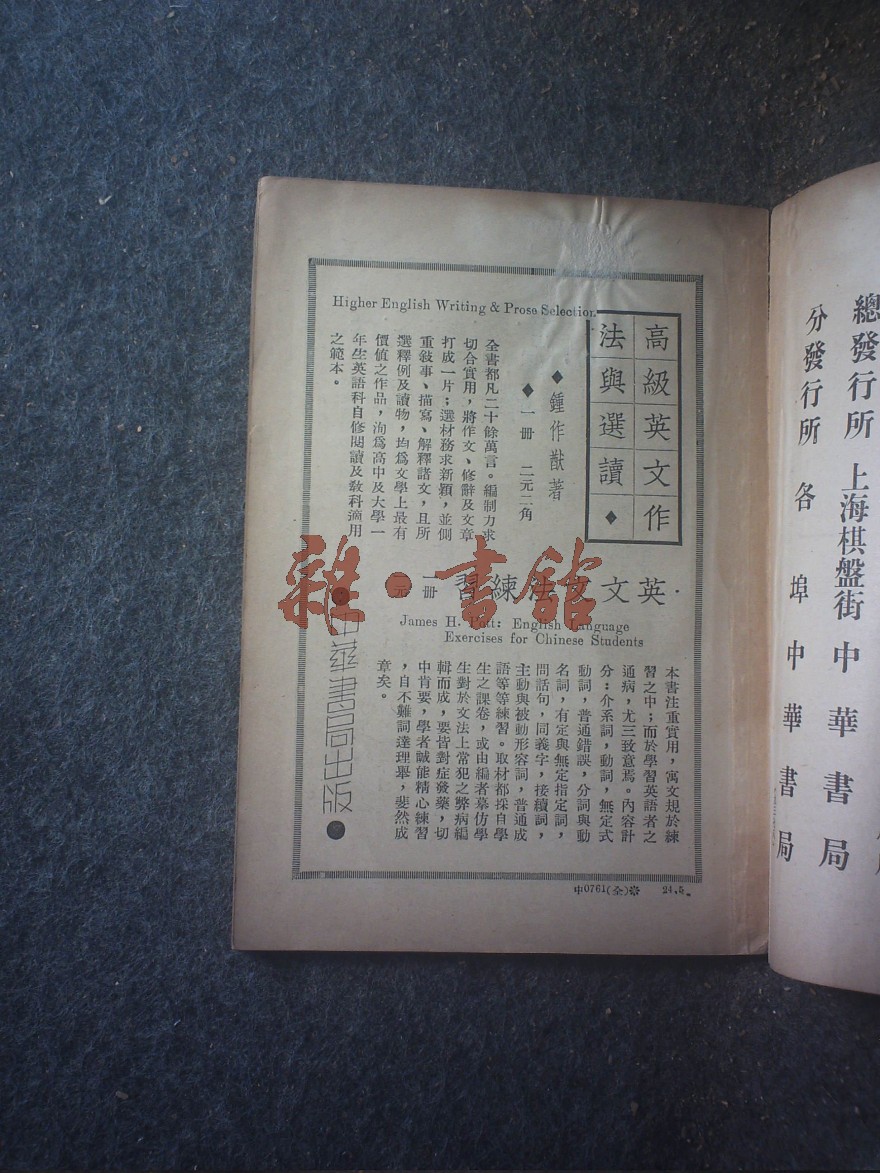 總發行所 上海棋盤街 中華書局
分發行所 各埠中華書局
Higher English Writing & Prose Selection
高級英文作
法與選讀◆
◆鍾作猷著
◆一冊 二元二角
全書都凡二十餘萬言。編制力求
切合實用,將作文、修辭及文章
打成一片;選材務求新穎,並側
重敍事、描寫、解釋諸文,且所
選釋例及讀物,均爲文學上最有
價值之作品,洵爲高中及大學一
年生英語科自修閱讀及敎科適用
之範本。
英文文法練習
一冊
一元
James H. Pott: English Language
Exercises for Chinese Students
本書注重實用,寓文規於練
習之中;而於學習英語者之
通病,尤三致意焉。內容計
分:介系詞,動詞,無定式
動詞,普通錯誤,分詞與動
名詞,有定與無定指定詞,
問話句,同義字,接續詞,
主動與被動形容詞,普通成
語等等練習。取材都採自學
生之課卷,或由編者摹仿學
生對於文法上常犯之弊病編
輯而成,要皆對症發藥,切
中肯要,學者誠能精心練習
,自不難詞達理舉,斐然成
章矣。
●中華書局出版●
中0761(全)※ 24.5.
雜·書館